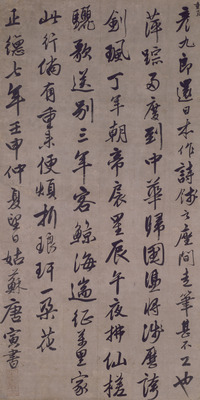 彥九郎還日本作詩餞之座間走筆甚不工也
萍踪兩度到中華歸國憑將涉歷誇
劍珮丁年朝帝扆星辰午夜拂仙槎
驪歌送別三年客鯨海遄征萬里家
此行倘有重来便煩折琅玕一朶花
正德七年壬申仲夏望日姑蘇唐寅書